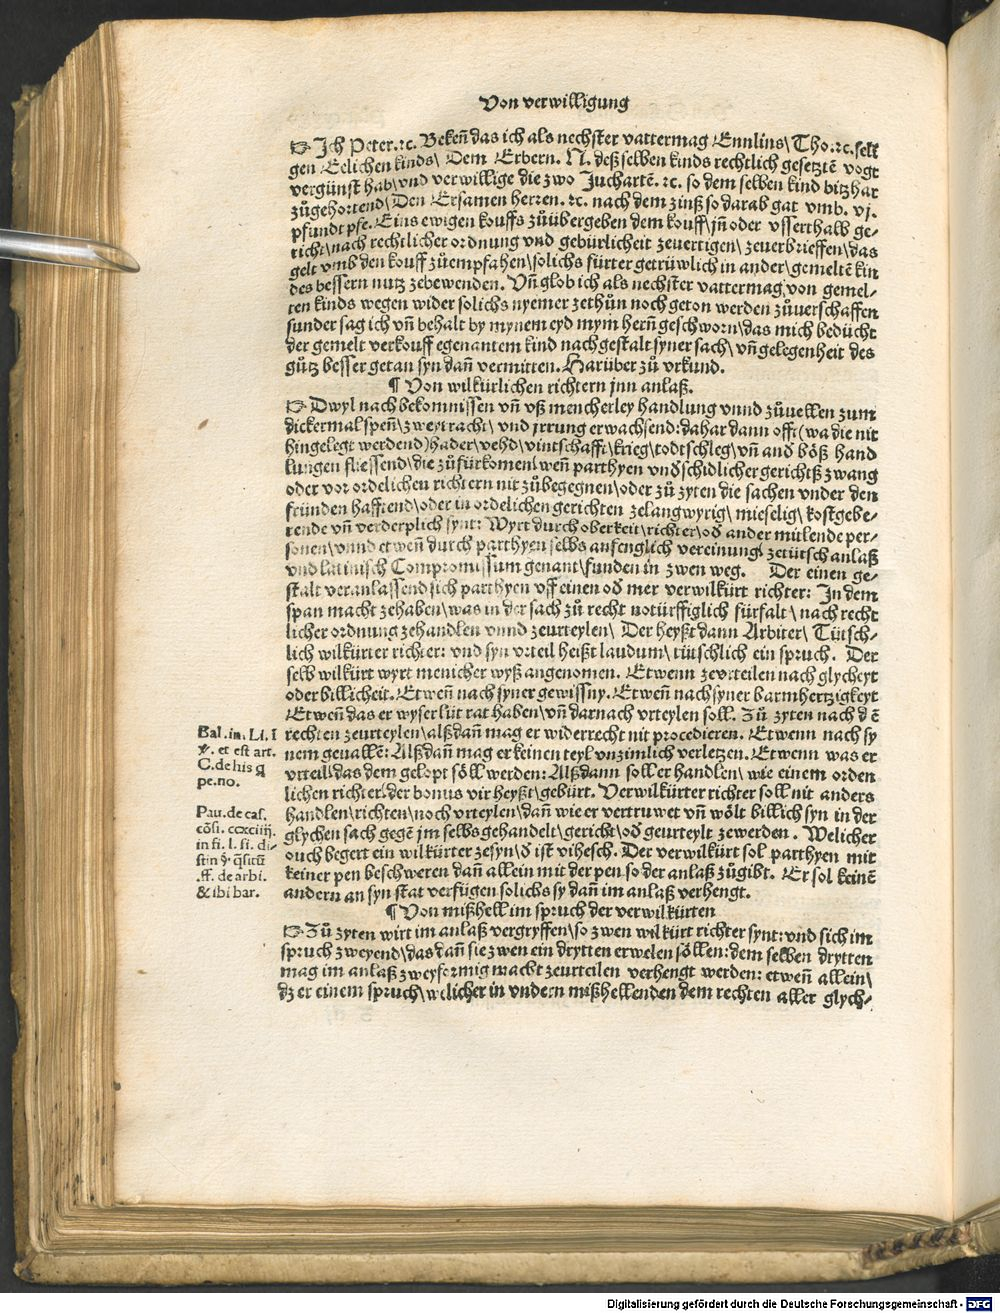 Von verwilligung
☞ Ich Peter. ⁊c. Bekeñ das ich als nechster vattermag Ennlins\ Tho. ⁊c. selt
gen Eelichen kinds\ Dem Erbern. N. deß selben kinds rechtlich gesetztē vogt
vergünst hab\ vnd verwillige die zwo Juchartē. ⁊c. so dem selben kind bitz har
zůgehortend\ Den Ersamen herren. ⁊c. nach dem zinß so darab gat vmb. vj.
pfundt pfe. Eins ewigen kouffs zůübergeben dem kouff\ jñ oder vsserthalb ge-
richt\ nach rechtlicher ordnung vnd gebürlicheit zeuertigen\ zeuerbrieffen\ das
gelt vmb den kouff zůempfahen\ solichs fürter getrüwlich in ander\ gemeltē kin
des bessern nutz zebewenden. Vñ glob ich als nechster vattermag von gemel-
ten kinds wegen wider solichs nyemer zethůn noch geton werden zůverschaffen
sunder sag ich vñ behalt by mynem eyd mym herñ geschworn\ das mich bedücht
der gemelt verkouff egenantem kind nach gestalt syner sach\ vñ gelegenheit des
gůtz besser getan syn dañ vermitten. Harüber zů vrkund.
¶ Von wilkürlichen richtern jnn anlaß.
☞ Dwyl nach bekomnissen vñ vß mencherley handlung vnnd zůuellen zum
dickermal speñ\ zweytracht\ vnd jrrung erwachsend: dahar dann offt (wa die nit
hingelegt werdend) hader\ vehd\ vintschafft\ krieg\ todtschleg\ vñ and böß hand
lungen fliessend\ die zůfürkomen\ weñ parthyen vnd schidlicher gerichtß zwang
oder vor ordelichen richtern nit zůbegegnen\ oder zů zyten die sachen vnder den
fründen hafftend\ oder in ordelichen gerichten zelangwyrig\ mieselig\ kostgebe-
rende vñ verderplich synt: Wyrt durch oberkeit\ richter\ od ander mülende per-
sonen\ vnnd etweñ durch parthyen selbs anfenglich vereinung\ zetütsch anlaß
vnd latinisch Compromissum genant\ funden in zwen weg. Der einen ge-
stalt veranlassend sich parthyen vff einen od mer verwilkürt richter: In dem
span macht zehaben\ was in der sach zů recht notürffiglich fürfalt\ nach recht
licher ordnung zehandlen vnnd zeurteylen\ Der heyßt dann Arbiter\ Tütsch-
lich wilkürter richter: vnd syn vrteil heißt laudum\ tütschlich ein spruch. Der
selb wilkürt wyrt menicher wyß angenomen. Etwenn zevrteilen nach glycheyt
oder billicheit. Etweñ nach syner gewissny. Etweñ nach syner barmhertzigkeyt
Etweñ das er wyser lüt rat haben\ vñ darnach vrteylen soll. Zů zyten nach dē
rechten zeurteylen\ alß dañ mag er widerrecht nit procedieren. Etwenn nach sy
nem geuallē: Alß dañ mag er keinen teyl vnzimlich verletzen. Etwenn was er
vrteil\ das dem gelopt söll werden: Alß dann soll er handlen\ wie einem orden
lichen richter\ der bonus vir heyßt\ gebürt. Verwilkürter richter soll nit anders
handlen\ richten\ noch vrteylen\ dañ wie er vertruwet vñ wölt billich syn in der
glychen sach gegē jm selbs gehandelt\ gericht\ od geurteylt zewerden. Welicher
ouch begert ein wilkürter zesyn\ d ist vihesch. Der verwilkürt sol parthyen mit
keiner pen beschweren dañ allein mit der pen so der anlaß zůgibt. Er sol keinē
andern an syn stat verfügen solichs sy dañ im anlaß verhengt.
¶ Von mißhell im spruch der verwilkürten
☞ Zů zyten wirt im anlaß vergryffen\ so zwen wilkürt richter synt: vnd sich im
spruch zweyend\ das dañ sie zwen ein drytten erwelen söllen: dem selben drytten
mag im anlaß zweyformig macht zeurteilen verhengt werden: etweñ allein\
dz er einem spruch\ welicher in vndern mißhellenden dem rechten aller glych-
Bal. in. Li. i
et est art.
C. de his q
pe. no.
Pau. de cas.
cōsi. ccxciiij.
in fi. l. si. di-
stin
.ff. de arbi.
& ibi bar.
Digitalisierung gefördert durch die Deutsche Forschungsgemeinschaft - DFG